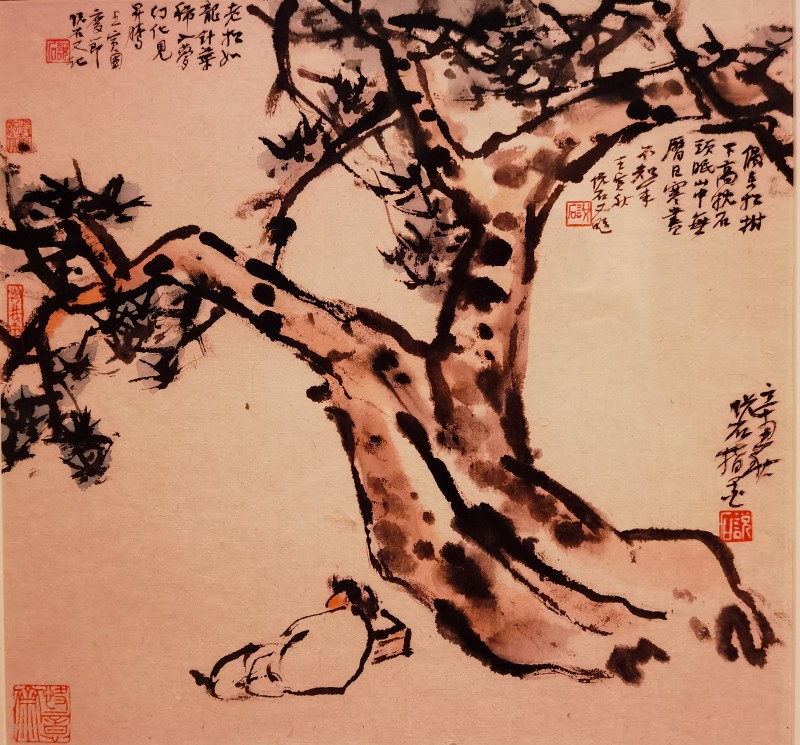 老松如
龍針葉
稀入夢
幻化見
昇騰
壬寅國
慶節
說石又記
偶來松樹
下高枕石
頭眠山中無
曆日寒盡
不知年
壬寅秋
說石又題
說石指墨
說石